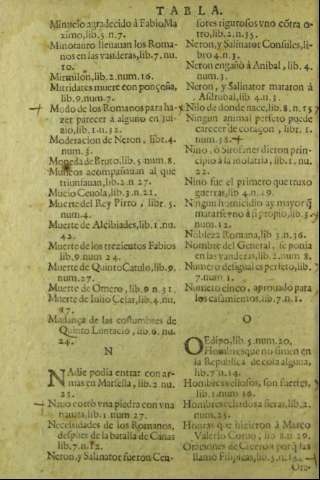 TABLA.
Minucio agradecido à Fabio Ma
ximo, lib.5.n.7.
Minotauro lleuauan los Roma-
nos en las vanderas, lib.7.nu.
10.
Mirmilon, lib.2.num.16.
Mitridates muere con ponçoña,
lib.9.num.7.
Modo de los Romanos para ha-
zer parecer a alguno en jui-
zio, lib.1.n.32.
Moderacion de Neron, lib.4.
num.3.
Moneda de Bruto, lib.5.num.8.
acompañauan al que
triunfauan, lib.2.n.27.
Mucio Ceuola, lib.3.n.21.
Muerte del Rey Pirro, libr.5.
num.4.
Muerte de Alcibiades, lib.1.nu.
42.
Muerte de los trezientos Fabios
lib.9.num.24.
Muerte de Quinto Catulo, lib.9.
num.27.
Muerte de Omero, lib.9.n.31.
Muerte de Iulio Cesar, lib.4.nu.
Mudança de las costumbres de
Quinto lib.6.nu.
24.
N
NAdie podia entrar con ar-
mas en Marsella, lib.2.nu.
25.
Nauio cortò vna piedra con vna
nauaja, lib.1.num.27.
Necessidades de los Romanos,
despues de la batalla de Canas
lib.7.n.12.
Neron, y Salinator fueron Cen-
sores rigurosos vno cõtra o-
tro, lib.2.n.35.
Neron, y Salinator Consules, li-
bro 4.n.3.
Neron engañò a Anibal, lib.4.
num.3.
Neron, y Salinator mataron à
Asdrubal, lib.4.n.3.
Nilo de donde nace, lib.8.n.15
Ningun animal perfeto puede
carecer de coraçon, libr.1.
num.38.
Nino, ò dieron prin-
cipio à la idolatria, lib.1.nu.
22.
Nino fue el primero que truxo
guerras, lib.4.n.19.
Ningun homicidio ay mayor q̃
matarse vno à si propio, lib.5.
num.12.
Nobleza Romana, lib.3.n.36.
Nombre del General, se ponia
en las vanderas, lib.2.num.8.
Numero desigual es perfeto, lib.
7.num.1.
Numero cinco, aprouado para
los casamientos, lib.7.n.1.
O
OEdipo, lib.5.num.20.
Hombres que no siruen en
la Republica de cosa alguna,
lib.7.n.14.
Hombres vellosos, son fuertes,
lib.1.num.36.
Hombres fieras, lib.2.
num.25.
Honras que hizieron à Marco
Valerio Coruo, lib.8.n.29.
Oraciones de Ciceron por q̃ las
llamo Filipicas, lib.5.n.13.
Ora-